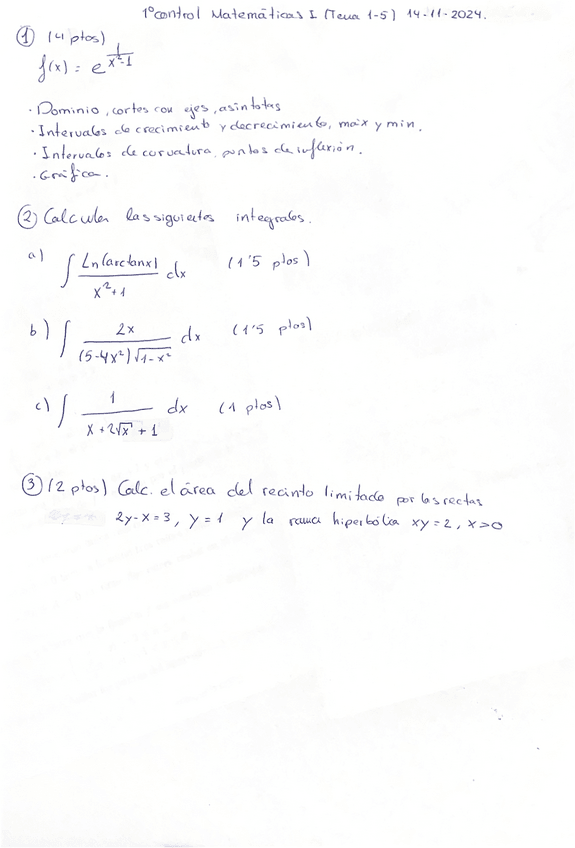 1º Control Matemáticas I (Tema 1-5) 14-11-2024.
① (4 ptos)
f(x) = e^(1/(x²-1))
· Dominio, cortes con ejes, asíntotas
· Intervalos de crecimiento y decrecimiento, max y min.
· Intervalos de curvatura, puntos de inflexión.
· Gráfica.
② Calcular las siguientes integrales.
a) ∫ Ln(arctanx) / (x²+1) dx (1'5 ptos)
b) ∫ 2x / ((5-4x²)√(1-x²)) dx (1'5 ptos)
c) ∫ 1 / (x+2√x+1) dx (1 ptos)
③ (2 ptos) Calc. el área del recinto limitado por las rectas
2y-x=3, y=1 y la rama hiperbólica xy=2, x>0